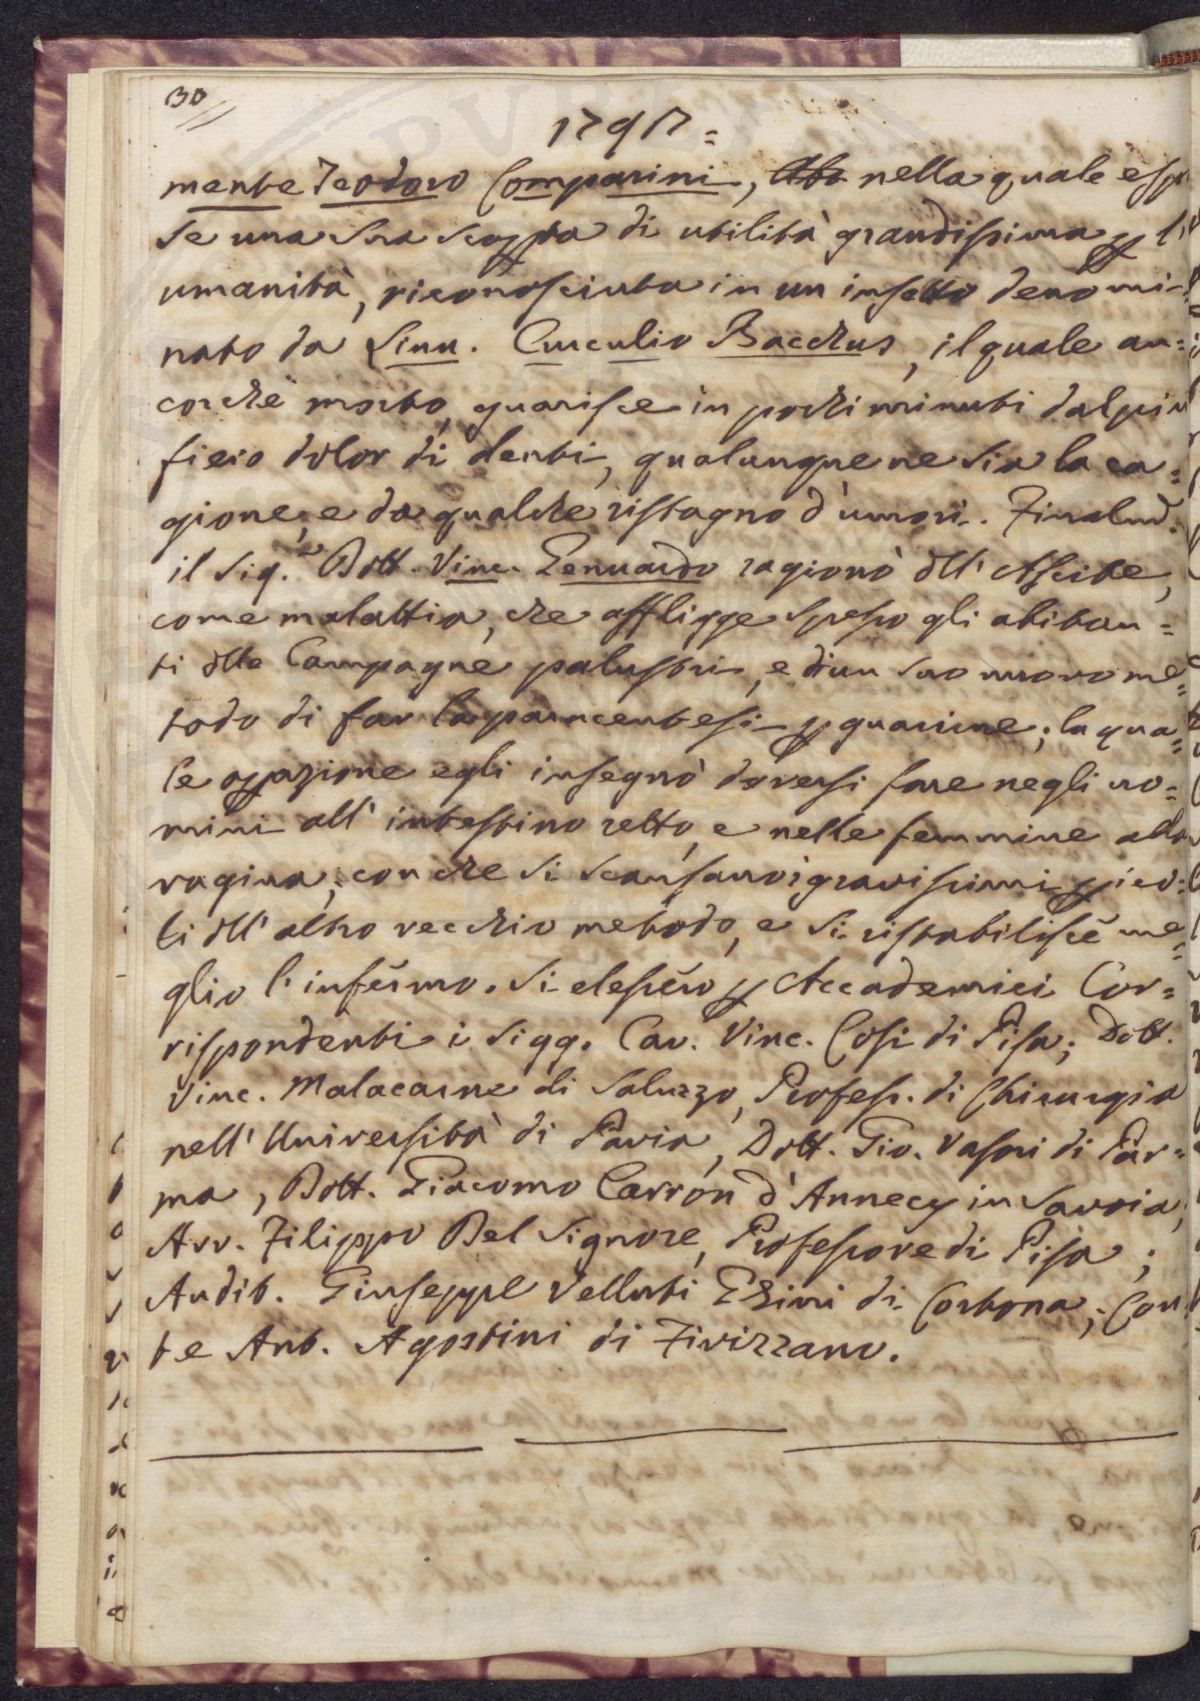 30
1795 =
mente Teodoro Comparini, nella quale espo
se una sua scopta di utilità grandissima p l'
umanità, riconosciuta in un insetto denomi-
nato da Linn. Curculio Bacchus, il quale an=
corchè morto, guarisce in pochi minuti dal piu
fiero dolor di denti, qualunque ne sia la ca=
gione, e da qualche ristagno d'umori. Finalmᵉ.
il Sig.ʳ Dott. Vinc. Lenuardo ragionò dll' Ascite,
come malattia, che affligge spesso gli abitan=
ti dlle Campagne palustri, e d'un suo nuovo me=
todo di far la paracentesi p guarirne; la qua=
le opazione egli insegnò doversi fare negli uo=
mini all' intestino retto, e nelle femmine alla
vagina; con che si scansano i gravissimi pico=
li dll' altro vecchio metodo, e si ristabilisce me=
glio l'infermo. Si elessero p Accademici Cor=
rispondenti i Sigg. Cav. Vinc. Cosi di Pisa; Dott.
Vinc. Malacarne di Saluzzo, Profess. di Chirurgia
nell' Università di Pavia, Dott. Gio. Vasori di Par=
ma, Dott. Giacomo Carron d'Annecy in Savoia;
Avv. Filippo Del Signore, Professore di Pisa;
Audit. Giuseppe Velluti Ghini di Cortona; Con
te Ant. Agostini di Fivizzano.